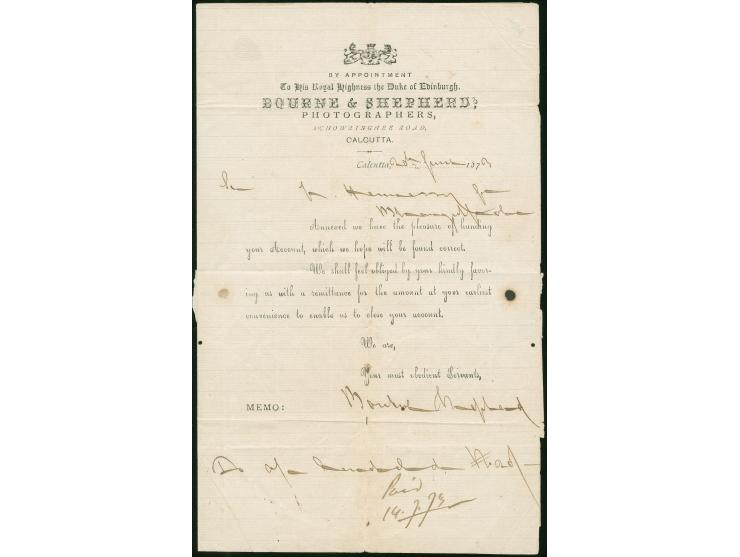 BY APPOINTMENT
To His Royal Highness the Duke of Edinburgh.
BOURNE & SHEPHERD,
PHOTOGRAPHERS,
CHOWRINGHEE ROAD,
CALCUTTA.
Calcutta, June 187
Hennessy
Annexed we have the pleasure of handing
your Account, which we hope will be found correct.
We shall feel obliged by your kindly favor-
ing us with a remittance for the amount at your earliest
convenience to enable us to close your account.
We are,
Your most obedient Servants,
MEMO: Bourne Shepherd
To a/c
Paid
14.7.79